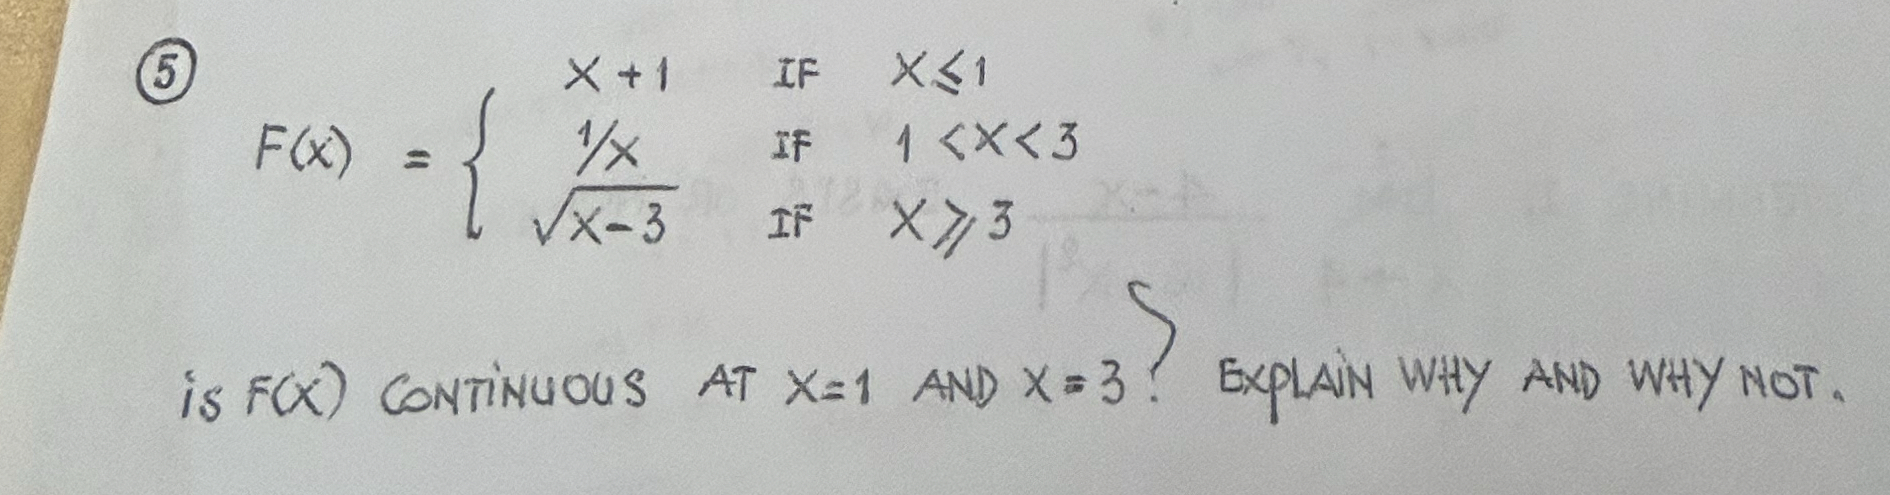 ⑤
x + 1 IF x ≤ 1
F(x) = { 1/x IF 1 < x < 3
√x-3 IF x ⩾ 3
is F(x) CONTINUOUS AT x=1 AND x=3? EXPLAIN WHY AND WHY NOT.